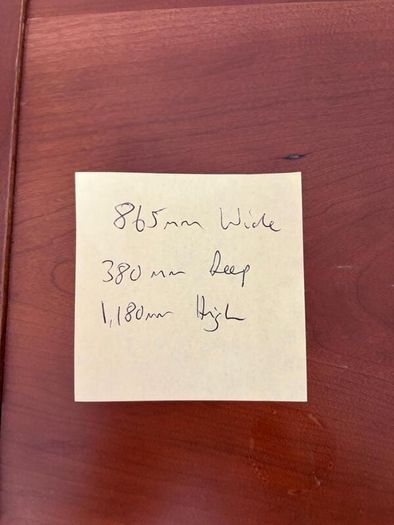 865mm Wide
380mm Deep
1,180mm High